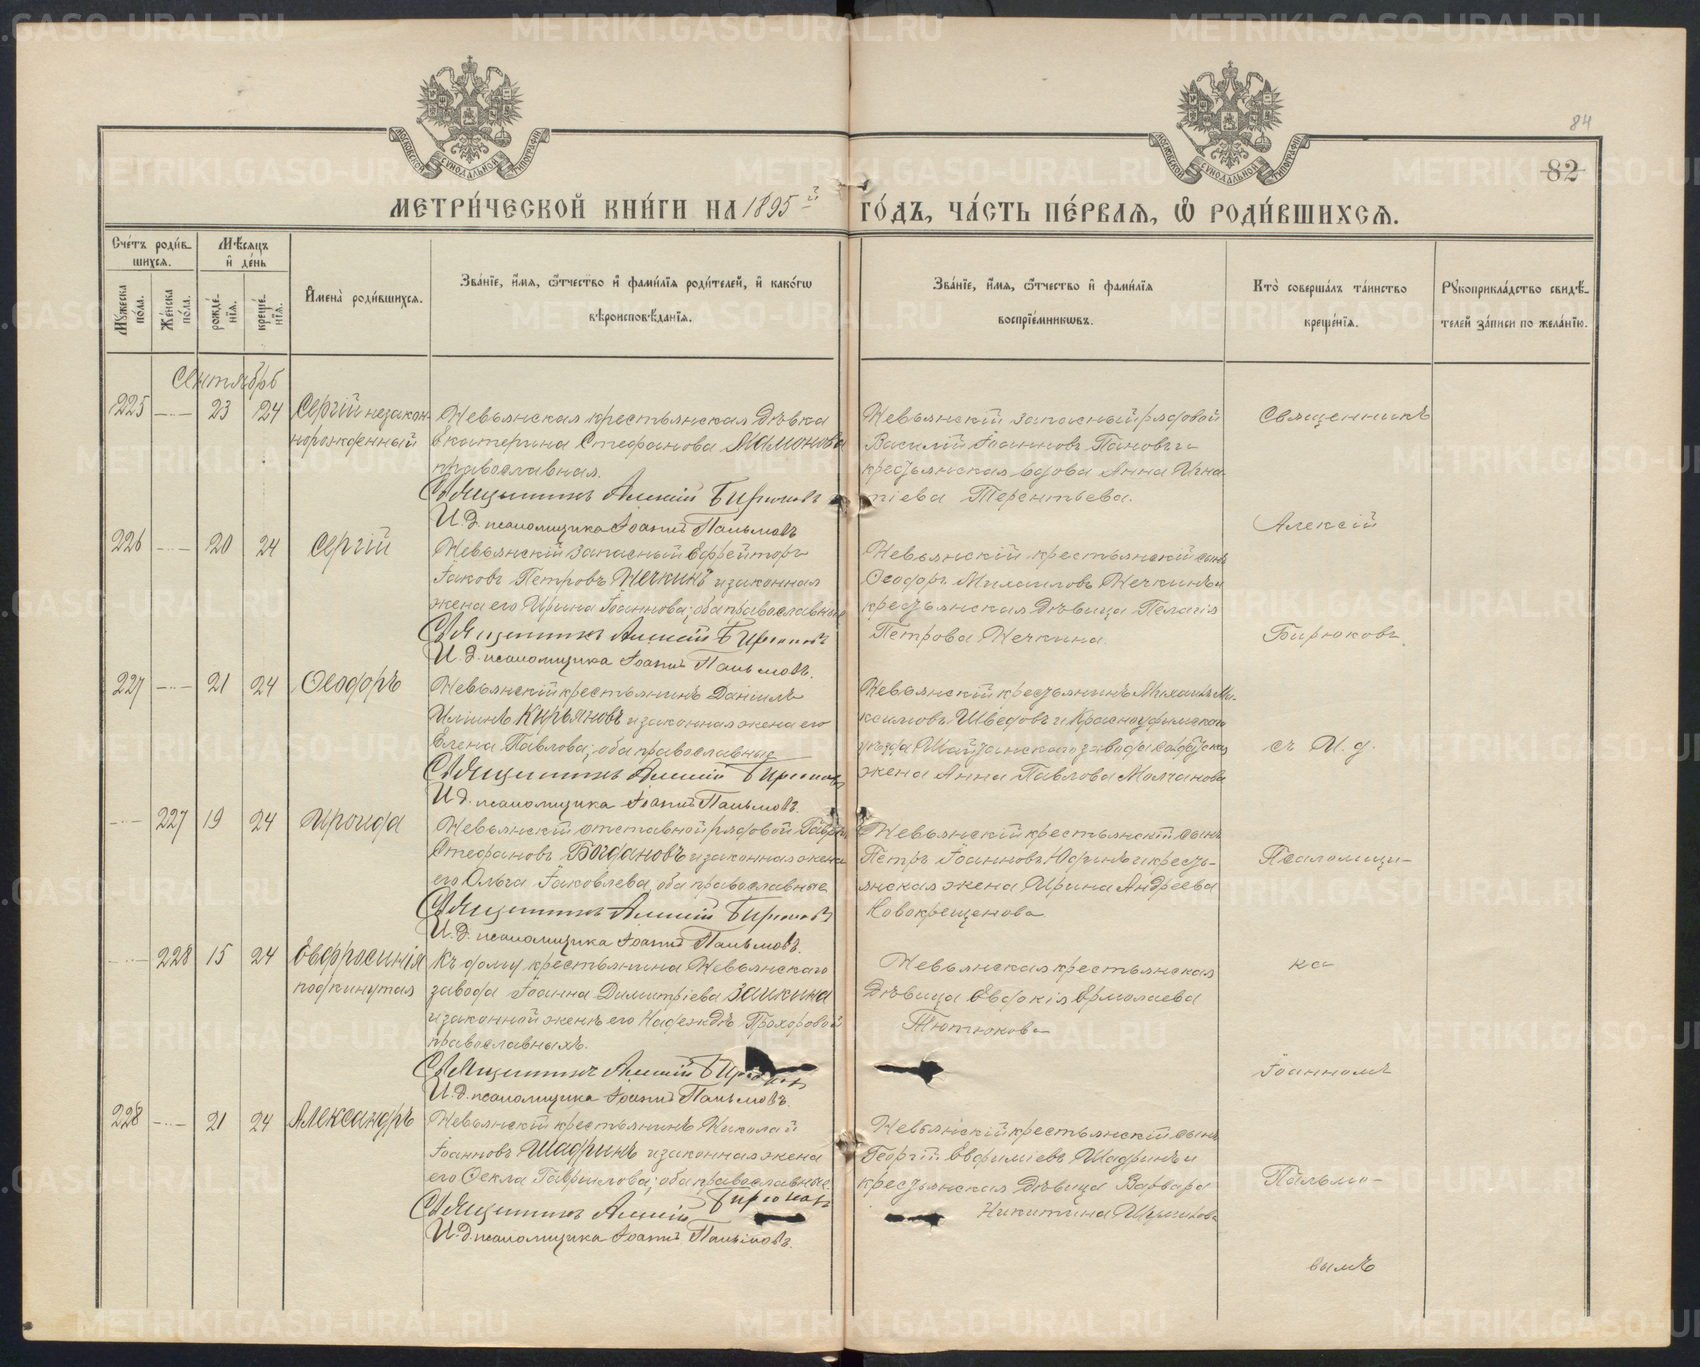 84
82
МЕТРИ́ЧЕСКОЙ КНИ́ГИ НА 1895й ГО́ДЪ, ЧА́СТЬ ПЕ́РВАЯ, Ѡ РОДИ́ВШИХСЯ.
Счётъ роди́в-
шихся.
Мѣ́сяцъ
и де́нь
Мꙋ́жеска по́ла.
Же́нска по́ла.
рожде́-
нія.
креще́-
нія.
Имена̀ роди́вшихся.
Зва́ніе, и́мя, ѻ҆́тчество и фами́лія роди́телей, и како́гѡ
вѣроисповѣ́данія.
Зва́ніе, и́мя, ѻ҆́тчество и фами́лія
воспріе́мникѡвъ.
Кто̀ соверша́лъ та́инство
креще́нія.
Рꙋкоприкла́дство свидѣ́-
телей за́писи по жела́нію.
Сентябрь
225 — 23 24 Сергій незакон-
норожденный
Невьянская крестьянская дѣвка
Екатерина Стефанова Мамонова
православная.
Священникъ Алексій Бирюковъ
И.д. псаломщика Іоаннъ Пальмовъ
Невьянскій запасный рядовой
Василій Іоанновъ Пановъ и
крестьянская вдова Анна Игна-
тіева Терентьева.
Священникъ
Алексій
226 — 20 24 Сергій
Невьянскій запасный Ефрейторъ
Іаковъ Петровъ Нечкинъ и законная
жена его Ирина Іоаннова; оба православные
Священникъ Алексій Бирюковъ
И.д. псаломщика Іоаннъ Пальмовъ.
Невьянскій крестьянскій сынъ
Ѳеодоръ Михаиловъ Нечкинъ и
крестьянская дѣвица Пелагія
Петрова Нечкина.
Бирюковъ
227 — 21 24 Ѳеодоръ
Невьянскій крестьянинъ Даніилъ
Иліинъ Кирьяновъ и законная жена его
Елена Павлова; оба православные
Священникъ Алексій Бирюковъ
И.д. псаломщика Іоаннъ Пальмовъ.
Невьянскій крестьянинъ Михаилъ Ма-
ксимовъ Шведовъ и Красноуфимскаго
уѣзда Шайтанскаго завода солдатская
жена Анна Павлова Молчанова
съ И. д.
— 227 19 24 Ироида
Невьянскій отставной рядовой Гавріилъ
Стефановъ Богдановъ и законная жена
его Ольга Іаковлева, оба православные
Священникъ Алексій Бирюковъ
И.д. псаломщика Іоаннъ Пальмовъ.
Невьянскій крестьянскій сынъ
Петръ Іоанновъ Юдинъ и кресть-
янская жена Ирина Андреева
Новокрещенова
Псаломщи-
— 228 15 24 Евфросинія
подкинутая
Къ дому крестьянина Невьянскаго
завода Іоанна Димитріева Заикина
и законной женѣ его Надеждѣ Прохоровой
православныхъ.
Священникъ Алексій Бирюковъ
И.д. псаломщика Іоаннъ Пальмовъ.
Невьянская крестьянская
дѣвица Евдокія Ермолаева
Тютюкова
ка
Іоанномъ
228 — 21 24 Александръ
Невьянскій крестьянинъ Николай
Іоанновъ Шадринъ и законная жена
его Ѳекла Гавриилова; оба православные
Священникъ Алексій Бирюковъ
И.д. псаломщика Іоаннъ Пальмовъ.
Невьянскій крестьянскій сынъ
Георгій Евфиміевъ Шадринъ и
крестьянская дѣвица Варвара
Никитина
Пальмо-
вымъ